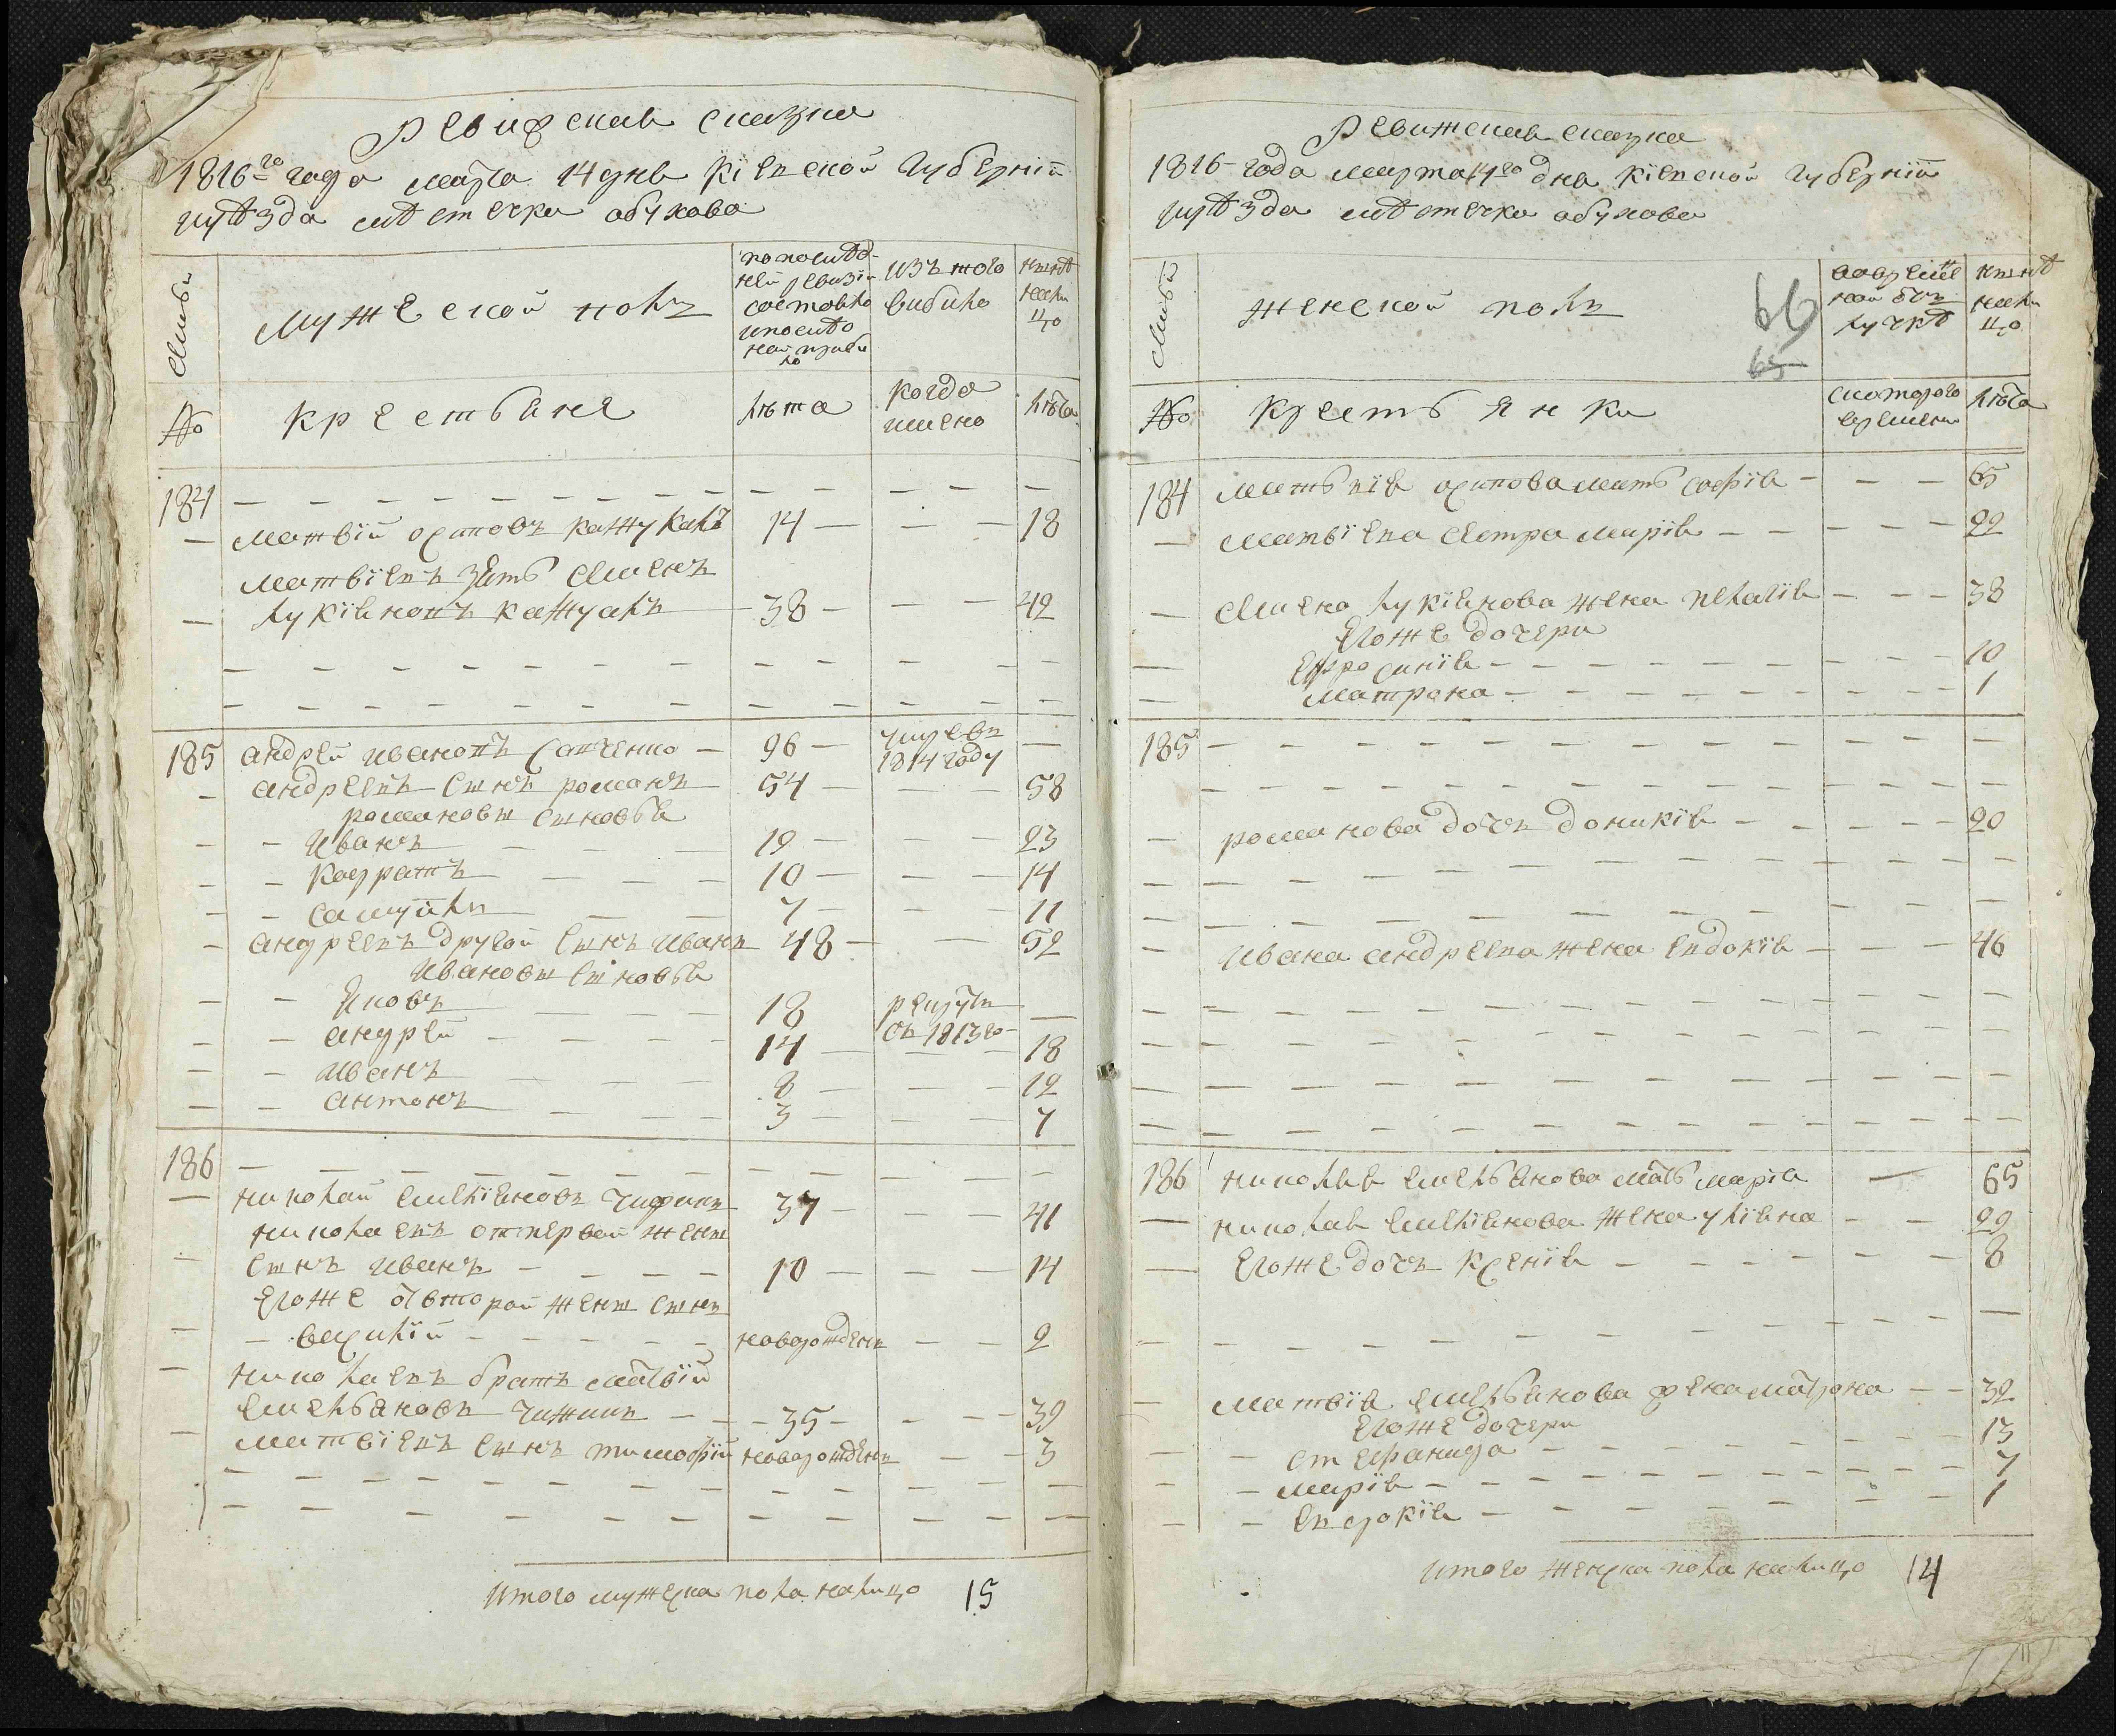 Ревижская сказка
1816го года марта 14 дня Кіевской Губерніи
уѣзда мѣстечка обухова
Семьи
Мужеской полъ
по послѣд-
ней ревизіи
состояло
и послѣ
ной прибы
ло
изъ того
выбыло
нынѣ
нали
цо
№
Крестьяне
лѣта
когда
имено
лѣта
184
Матвій осиповъ кажукалъ 14 18
Матвіевъ зять Семенъ
лукіяновъ кажукалъ 38 42
185 андрей ивановъ 96 умре въ
1814 году
андреевъ сынъ романъ 54 58
романовы сыновья
Иванъ 19 23
Кодратъ 10 14
самуйлъ 7 11
андреевъ другой сынъ иванъ 48 52
ивановы сыновья
Яковъ 18 рекрутъ
съ 1813го
андрей 14 18
иванъ 8 12
антонъ 3 7
186
николай емеліяновъ чижикъ 37 41
николаевъ отпервой жены
сынъ иванъ 10 14
Егоже отвторой жены сынъ
василій новорожденъ 2
николаевъ братъ матвій
Емельяновъ чижикъ 35 39
матвіевъ сынъ тимофій новорожденъ 3
Итого мужеска пола налицо 15
Ревижская сказка
1816 года марта 14го дня Кіевской Губерніи
уѣзда мѣстечка обухова
Семьи
Женской полъ
66
65
вовремен
ной отъ
лучкѣ
нынѣ
нали
цо
№
Крестьянки
скоторого
времени
лѣта
184 Матвія осипова мать софія 65
матвіева сестра марія 22
Семена лукіянова жена пелагія 38
Егоже дочери
Ефросинія 10
матрона 1
185
романова дочъ домникія 20
Ивана андреева жена Евдокія 46
186 николая емельянова мать марія 65
николая емеліянова жена уліяна 29
Егоже дочъ Ксенія 8
матвія емельянова жена матрона 32
Егоже дочери
стефанида 13
марія 7
Евдокія 1
Итого женска пола налицо 14